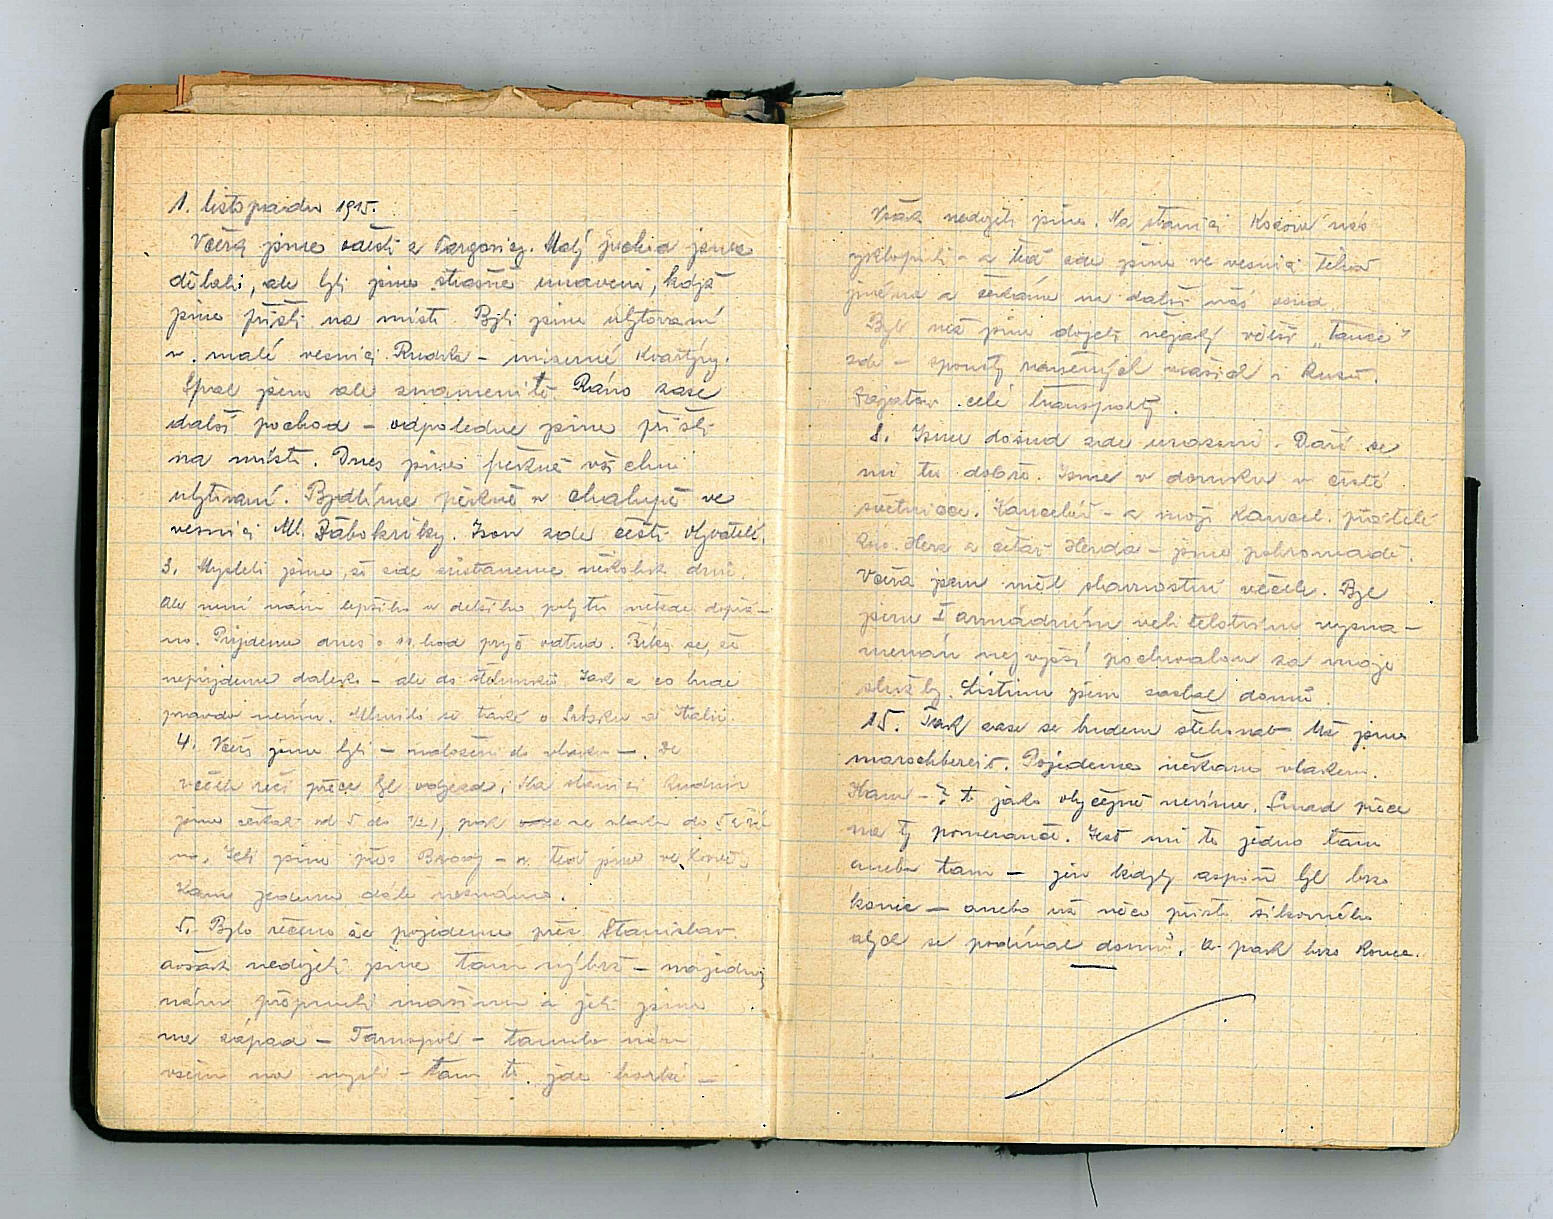 1. listopadu 1915.
Včera jsme odešli z Targovicy. Malý jsme
dělali, ale byli jsme strašně unaveni, když
jsme přišli na místo. Byli jsme ubytovaní
v malé vesnici Rudka – miserné kvartýry.
Spal jsem ale znamenitě. Ráno zase
další pochod – odpoledne jsme přišli
na místo. Dnes jsme pěkně všichni
ubytovaní. Bydlíme pěkně v chalupě ve
vesnici M. Dábokriky. Jsou zde čeští obyvatelé.
3. Mysleli jsme, že zde zůstaneme několik dní.
Ale není nám lepšího a delšího pobytu někde dopřá-
no. Půjdeme dnes o hod pryč odtud. Říká se, že
nepůjdeme daleko – ale do šturmů. Jak a co bude
pravda nevím. Mluví se také o Srbsku a Italii.
4. Včera jsme byli – naloženi do vlaku –. Do
večera než přece byl odjezd. Na stanici Rudnia
jsme čekali od 5 do, pak ve vlaku do 5
no. Jeli jsme přes Brody – a teď jsme ve
Kam jedeme dále neznámo.
5. Bylo řečeno že pojedeme přes Stanislav
avšak nedojeli jsme tam nýbrž – najednou
nám přepnuli mašinu a jeli jsme
na západ – Tarnopol – tanulo nám
všem na mysli – tam to jde horké –
Však nedojeli jsme. Na stanici Kozowa nás
vyklopili – a teď zde jsme ve vesnici téhož
jména a čekáme na další náš osud.
Byl než jsme dojeli nějaký větší „Tanec"
zde – spousty raněných našich i Rusů.
Zajatců celé transporty.
8. Jsme dosud zde usazeni. Daří se
mi tu dobře. Jsme v domku v čisté
světničce. Kancelář – a moji kancel. přátelé
Herz a četař Herda – jsme pohromadě.
Včera jsem měl slavnostní večer. Byl
jsem I armádním velitelstvím vyzna-
menán nejvyšší pochvalou za moje
služby. Listinu jsem zaslal domů.
15. Tak zase se budem stěhovat. Už jsme
marschbereit. Pojedeme někam vlakem.
Kam –? to jako obyčejně nevíme. Snad přece
na ty pomeranče. Jest mi to jedno tam
anebo tam – jen kdyby aspoň byl brzo
konec – anebo už něco přišlo šikovného
abych se podíval domů, a pak brzo konec.